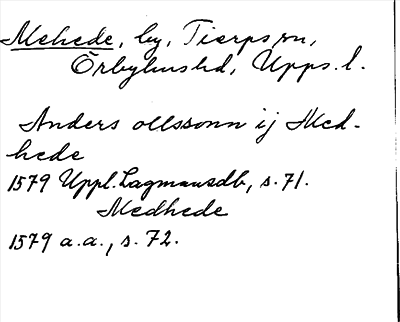 Mehede, by, Tierps sn,
Örbyhus hd, Upps. l.
Anders ollssonn ij Med-
hede
1579 Uppl. Lagmansdb, s. 71.
Medhede
1579 a.a., s. 72.